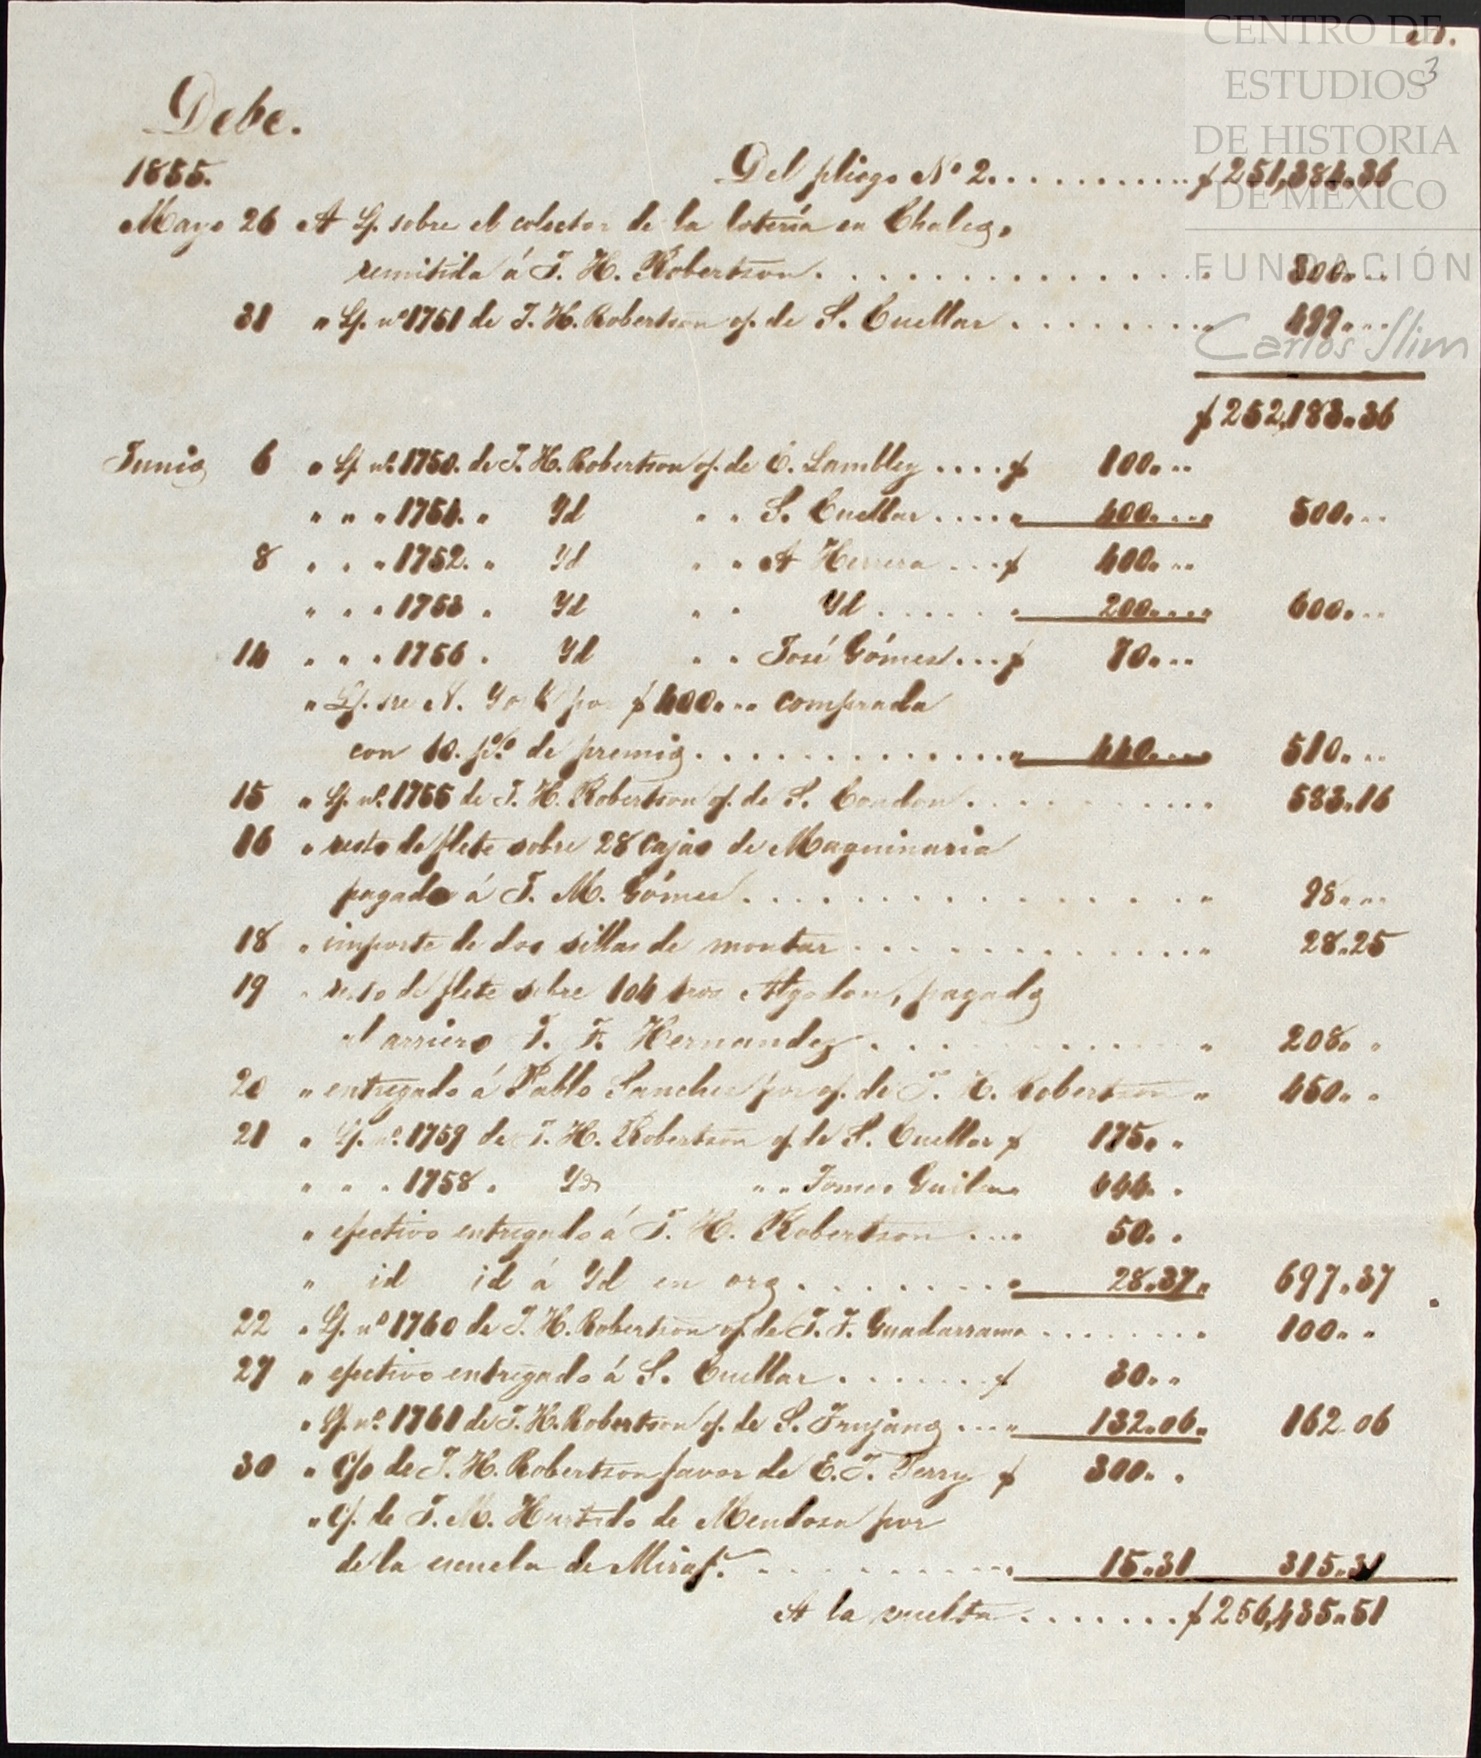 CENTRO DE
ESTUDIOS
DE HISTORIA
DE MÉXICO
FUNDACIÓN
Carlos Slim
3
Debe.
1855. Del pliego Nº 2. . . . . . . . . . . $ 251,384.36
Mayo 26 A Lp. sobre el colector de la lotería en Chalco,
remitida á J. H. Robertson . . . . . . . . . . . . . . " 300. . .
31 " Lp. nº 1751 de J. H. Robertson of. de S. Cuellar . . . . . . . . " 499. . .
$ 252,183.36
Junio 6 " Lp. nº 1750. de J. H. Robertson of. de C. Lambley . . . . $ 100. . .
" " " 1754. " Yd " " S. Cuellar . . . . " 400. . . " 500. . .
8 " " " 1752. " Yd " " A Herrera . . . $ 400. . .
" " " 1753 " Yd " " Yd . . . . . . " 200. . . " 600. . .
14 " " " 1756 " Yd " " José Gómez . . . $ 70. . .
" Lp. sre N. York por $ 400. . . comprada
con 10. p% de premio . . . . . . . . . . . . . " 440. . . " 510. . .
15 " Lp. nº 1755 de J. H. Robertson of. de S. Condon . . . . . . . . . . . 583.16
16 " resto de flete sobre 28 cajas de Maquinaria
pagado á J. M. Gómez . . . . . . . . . . . . . . . . " 98. . .
18 " importe de dos sillas de montar . . . . . . . . . . . . . " 28.25
19 " resto de flete sobre 104 tros Algodon, pagado
al arriero J. F. Hernandez . . . . . . . . . . . . " 208. .
20 " entregado á Pablo Sanchez por of. de J. H. Robertson " 450. .
21 " Lp. nº 1759 de J. H. Robertson of. de S. Cuellar $ 175. .
" " " 1758 " Yd " " Tomas " 444. .
" efectivo entregado á J. H. Robertson . . . " 50. .
" id id á Yd en oro . . . . . . . . " 28.37. 697.37
22 " Lp. nº 1760 de J. H. Robertson of. de J. F. Guadarrama . . . . . . . . 100. .
27 " efectivo entregado á S. Cuellar . . . . . . . $ 30. .
" Lp. nº 1761 de J. H. Robertson of. de S. Trujano . . . " 132.06. 162.06
30 " C/o de J. H. Robertson favor de E. J. Perry $ 300. .
" Of. de J. M. Hurtado de Mendoza por
de la escuela de Miraf. . . . . . . . . . . . " 15.31 315.31
A la vuelta . . . . . . . $ 256,435.51